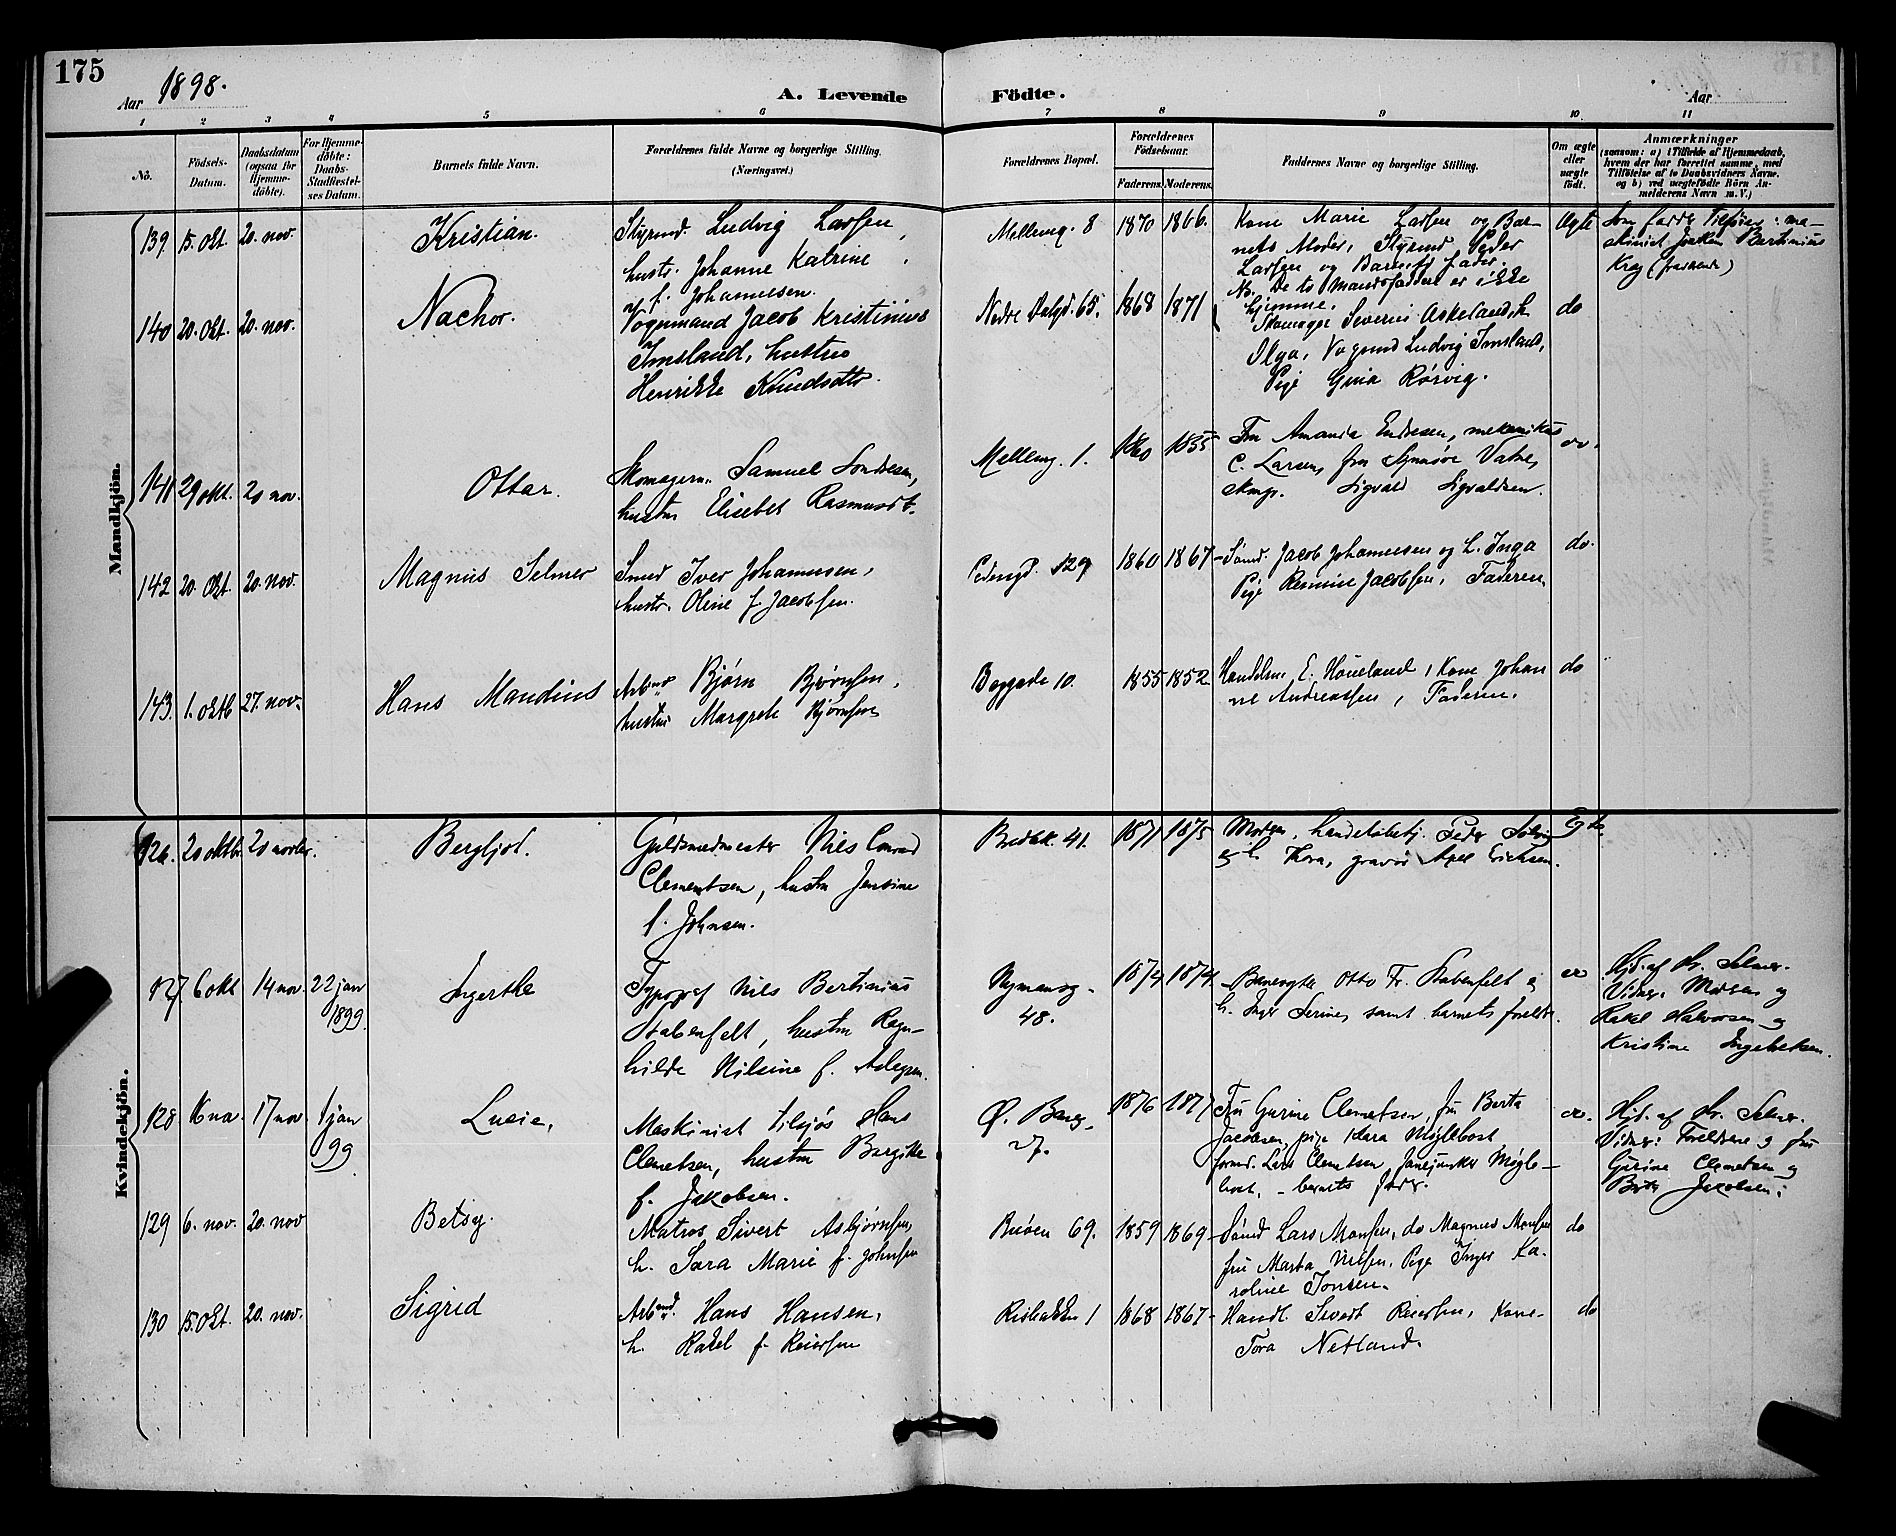 175
Aar 1898.
A. Levende Födte.
Aar
1 2 3 4 5 6 7 8 9 10 11
No.
Födsels-Datum.
Daabsdatum (ogsaa for Hjemme-döbte).
For Hjemme-döbte: Daabs-Stadfæstel-ses Datum.
Barnets fulde Navn.
Forældrenes fulde Navne og borgerlige Stilling. (Næringsvei.)
Forældrenes Bopæl.
Forældrenes Födselsaar.
Faderens. Moderens.
Faddernes Navne og borgerlige Stilling.
Om ægte eller uægte födt.
Anmærkninger
(saasom: a) i Tilfælde af Hjemmedaab, hvem der har forrettet samme, med Tilföielse af to Daabsvidners Navne, og b) ved uægtefödte Börn An-melderens Navn m. V.)
Mandkjön.
139 15. Okt. 20. nov. Kristian.
Styrmd Ludvig Larsen,
hustr. Johanne Katrine
f. Johannesen.
Mellemg. 8 1870 1866.
Kone Marie Larsen og Bar-
nets Moder, Styrmd Peder
Larsen og Barnets Fader.
Nb. De to Mandsfaddere er ikke
hjemme.
Ægte
Som fadder tilføies: ma-
skinist Joakim Bertinius
Krag
140 20. Okt. 20. nov. Nachor.
Vognmand Jacob Kristinius
Imsland, hustru
Henrikke Knudsdtr.
Nedre Dalgd. 65. 1868 1871
Skomager Severin Askeland, h.
Olga, Vognmd Ludvig Imsland,
Pige Gina Rørvig.
do
141 29 okt. 20 nov. Ottar.
Skomagerm. Samuel Sondresen,
hustru Elisebet Rasmusdt.
Mellemg. 1. 1860 1855
Fru Amanda Endresen, mekanikus
C. Larsen, fru Synnøve Vatne,
skmgr. Sigvald Sigvaldsen.
142 20. Okt. 20. nov. Magnus Selmer
Smed Iver Johannesen,
hustr. Oline f. Jacobsen.
Pedersgd. 129 1860 1867
Sømd. Jacob Johannesen og h. Inga
Pige Rasmine Jacobsen, Faderen.
do.
143. 1. oktb 27. nov. Hans Mandius
Arbmd Bjørn Bjørnsen,
hustru Margrete Bjørnsen
Baggade 10. 1855 1852
Handelsm. E. Høieland, Kone Johan
ne Andreassen, Faderen.
do
Kvindekjön.
126. 20 oktbr. 20 novbr. Bergljot.
Guldsmedmester Nils Conrad
Clementsen, hustru Jensine
f. Johnsen.
Bredbk. 41. 1871 1875
Moderen, handelsbetj. Peder Solvig
og h. Thora, gravør Axel Erichsen.
Egte
127 6 okt 14 nov. 22 jan 1899. Ingertha
Typograf Nils Bertinius
Stabenfelt, hustru Ragn-
hilde Nilsine f. Aslagsen.
Nymansg. 48. 1874 1874
Banevogter Otto Fr. Stabenfelt og
h. Inger Serine, samt barnets foreldr.
Hjd. af Dr. Selmer.
Vidner: Moderen og
Rakel Halvorsen og
Kristine Ingebretsen.
128 16 nov. 17 nov 1 jan 99 Lucie.
Maskinist tilsjøs Hans
Clemetsen, hustru Bergitte
f. Jakobsen.
Ø. Berg. 27. 1876 1877
Fru Gurine Clemetsen, fru Berta
Jacobsen, pige Klara Møglebost,
formd. Lars Clemetsen, Møgle-
bost, barnets fader.
Hjd. af Dr. Selmer.
Vidner: Foreldrene og fru
Gurine Clemetsen og
Berta Jacobsen.
129 6. nov. 20. nov Betsy.
Matros Sivert Asbjørnsen,
h. Sara Marie f. Johnsen
Buøen 69. 1859 1869
Sømd Lars Monsen, do Magnus Monsen
fru Marta Nilsen, Pige Inger Ka-
roline Tonsen.
do
130 15. Okt. 20. nov. Sigrid
Arbmd. Hans Hansen,
h. Rakel f. Reiersen
Risbakken 1 1868 1867
Handl. Sivert Reiersen, Kone
Tora Netland.
do